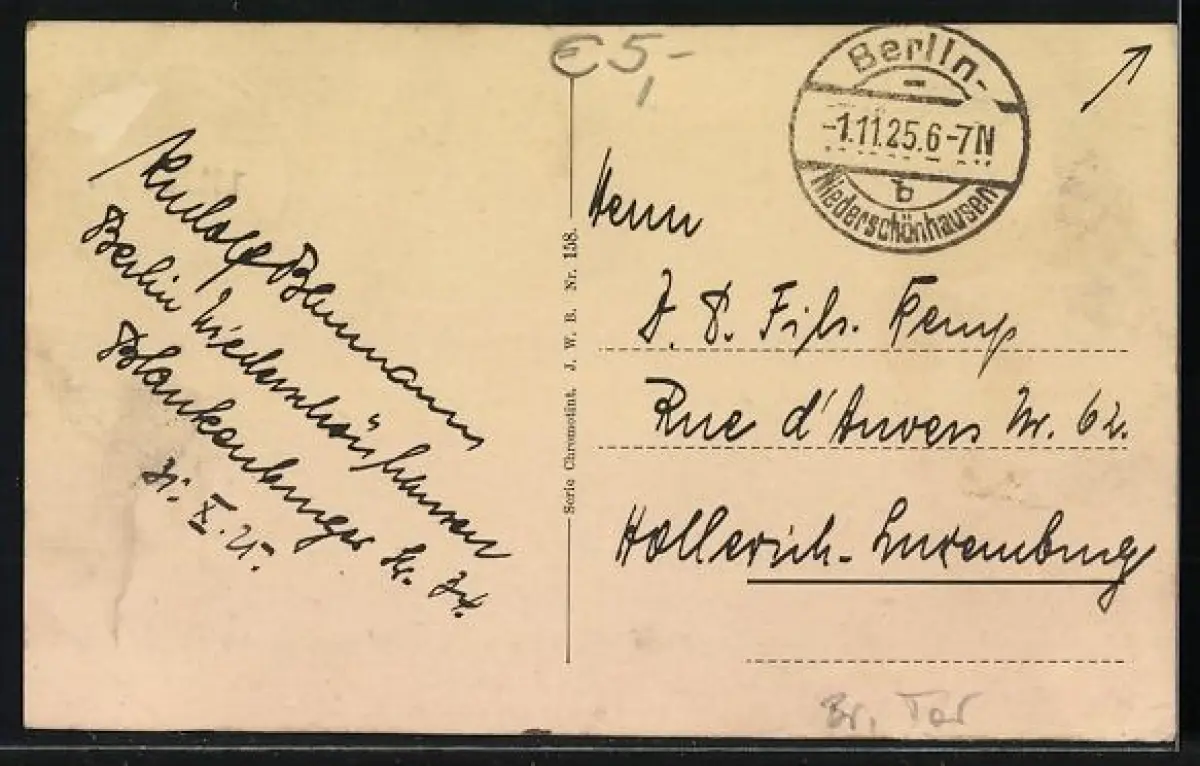 € 5,-
Berlin-
-1.11.25.6-7N
b
Niederschönhausen
Rudolf Baumann
Berlin Niederschönhausen
Blankenburger Str.
31. X. 25.
Serie Chromotint. J. W. B. Nr. 158.
Herrn
J. P. Fils. Kemp
Rue d'Anvers Nr. 62.
Hollerich-Luxemburg
Br. Tor